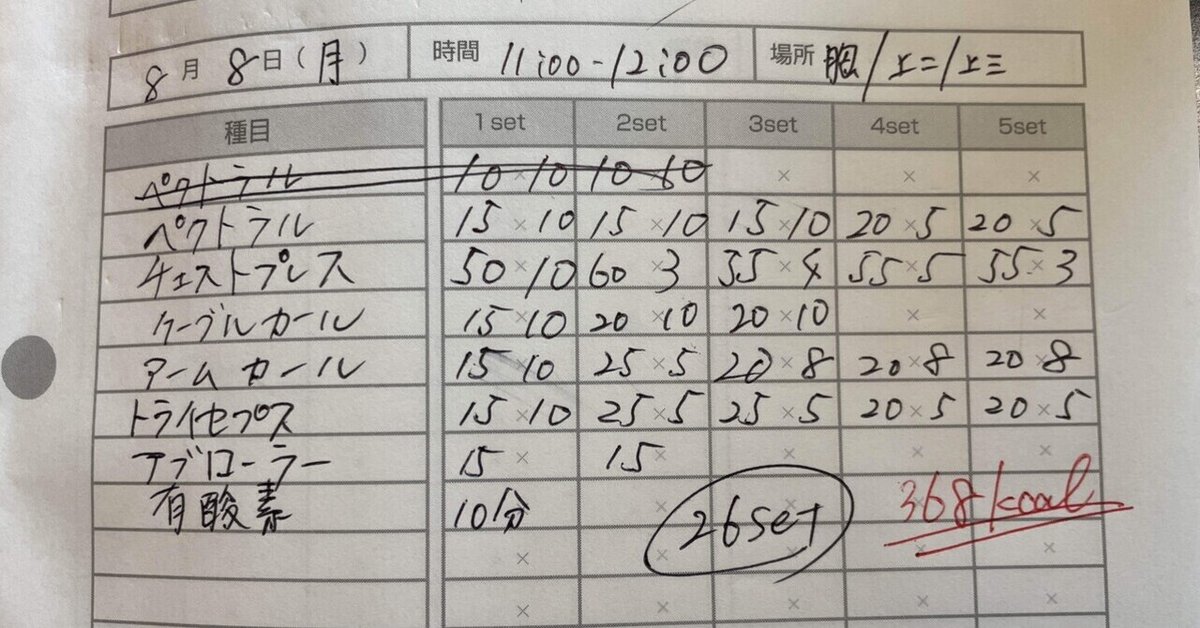 8月 8日(月) 時間 11:00-12:00 場所 胸/上二/上三
種目 1set 2set 3set 4set 5set
ペクトラル 10×10 10×10 × × ×
ペクトラル 15×10 15×10 15×10 20×5 20×5
チェストプレス 50×10 60×3 55×4 55×5 55×3
ケーブルカール 15×10 20×10 20×10 × ×
アームカール 15×10 25×5 20×8 20×8 20×8
トライセプス 15×10 25×5 25×5 20×5 20×5
アブローラー 15× 15× × × ×
有酸素 10分 × × × ×
26set 368kcal
× × ×
× × × × ×